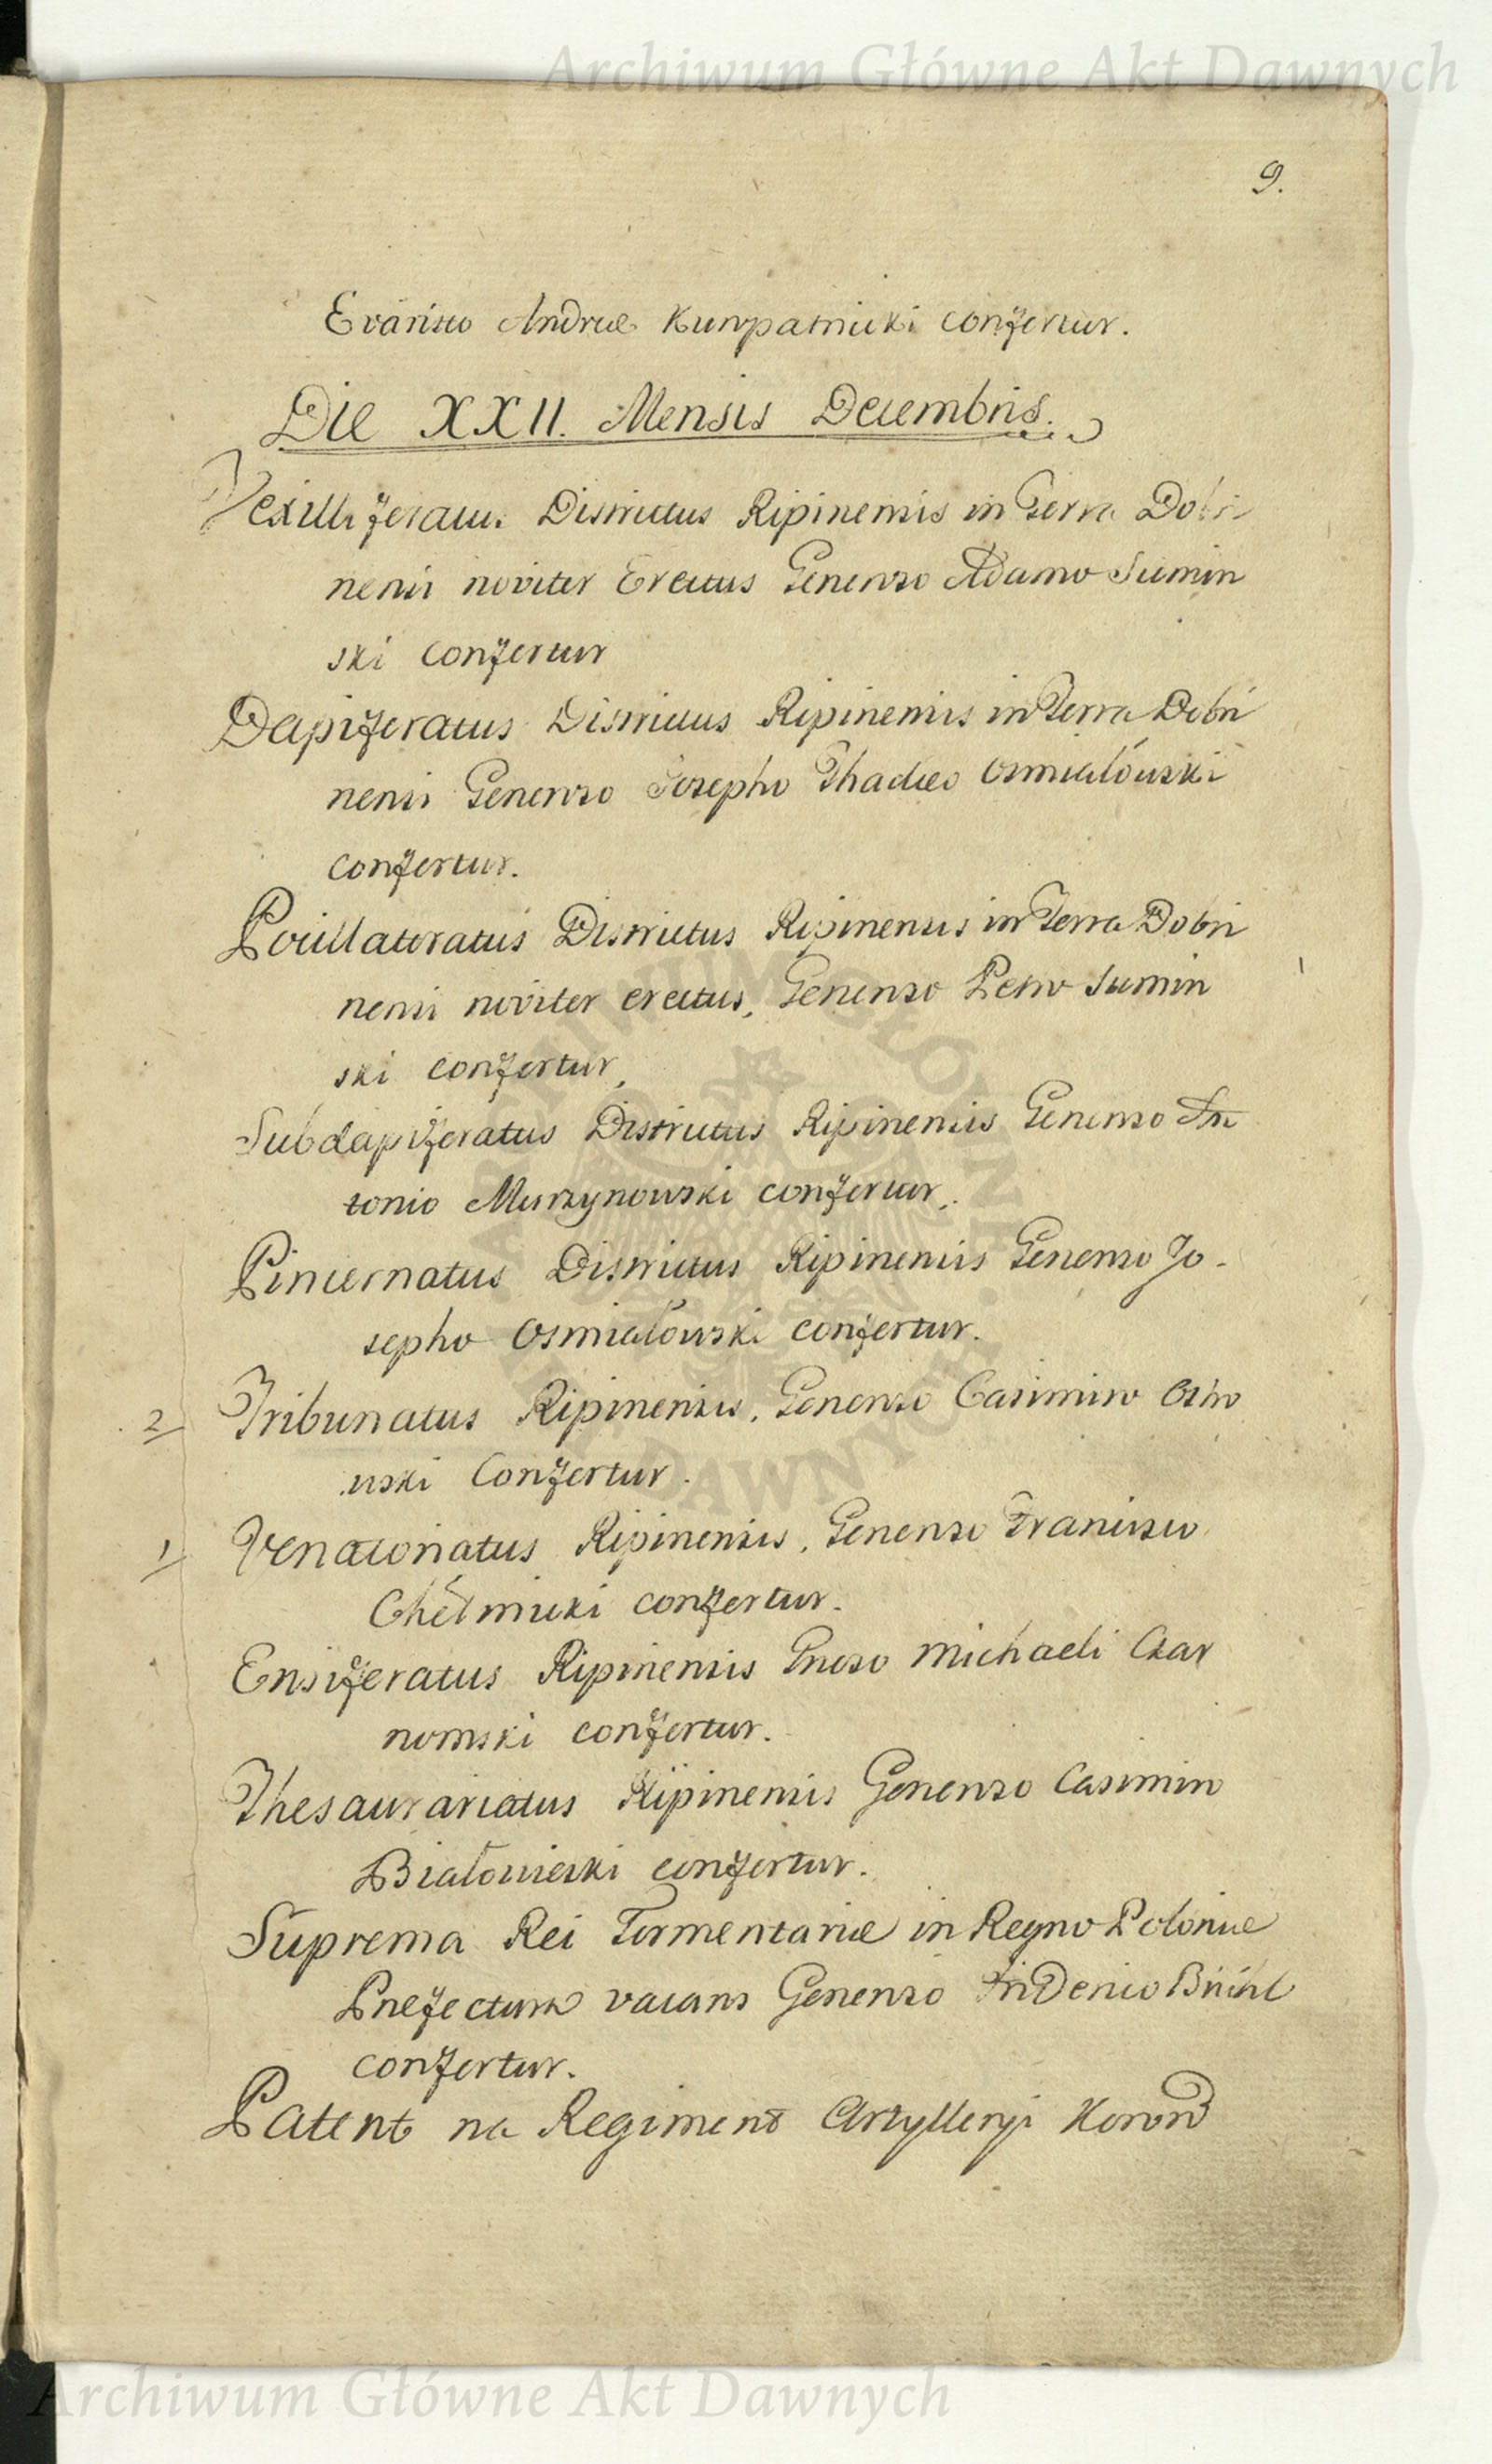 Archiwum Główne Akt Dawnych
9.
Evaristo Andreæ Kuropatnicki confertur.
Die XXII. Mensis Decembris.
Vexilliferatus Districtus Ripinensis in Terra Dobri
nensi noviter Erectus Generoso Adamo Sumin
ski confertur
Dapiferatus Districtus Ripinensis in Terra Dobri
nensi Generoso Josepho Thadæo Osmiałowski
confertur.
Pocillatoratus Districtus Ripinensis in Terra Dobri
nensi noviter erectus, Generoso Petro Sumin
ski confertur,
Subdapiferatus Districtus Ripinensis Generoso An
tonio Murzynowski confertur.
Pincernatus Districtus Ripinensis Generoso Jo-
sepho Osmiałowski confertur.
2 Tribunatus Ripinensis, Generoso Casimiro Ostro
wski Confertur.
1 Venatoriatus Ripinensis, Generoso Francisco
Chełmicki confertur.
Ensiferatus Ripinensis Gneroso Michaeli Czar
nomski confertur.
Thesaurariatus Ripinensis Generoso Casimiro
Białowieski confertur.
Suprema Rei Tormentariæ in Regno Poloniæ
Præfectura vacans Generoso Friderico Brühl
confertur.
Patent na Regiment Artylleryi Koron
ARCHIWUM GŁÓWNE AKT DAWNYCH
Archiwum Główne Akt Dawnych